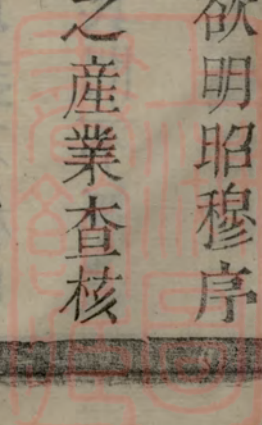 欲明昭穆序
之産業查核